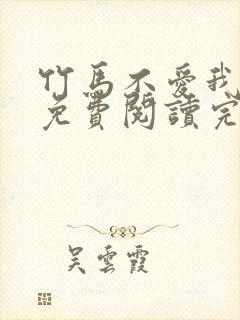 竹馬不愛我
免費閱讀完
吳雲霞